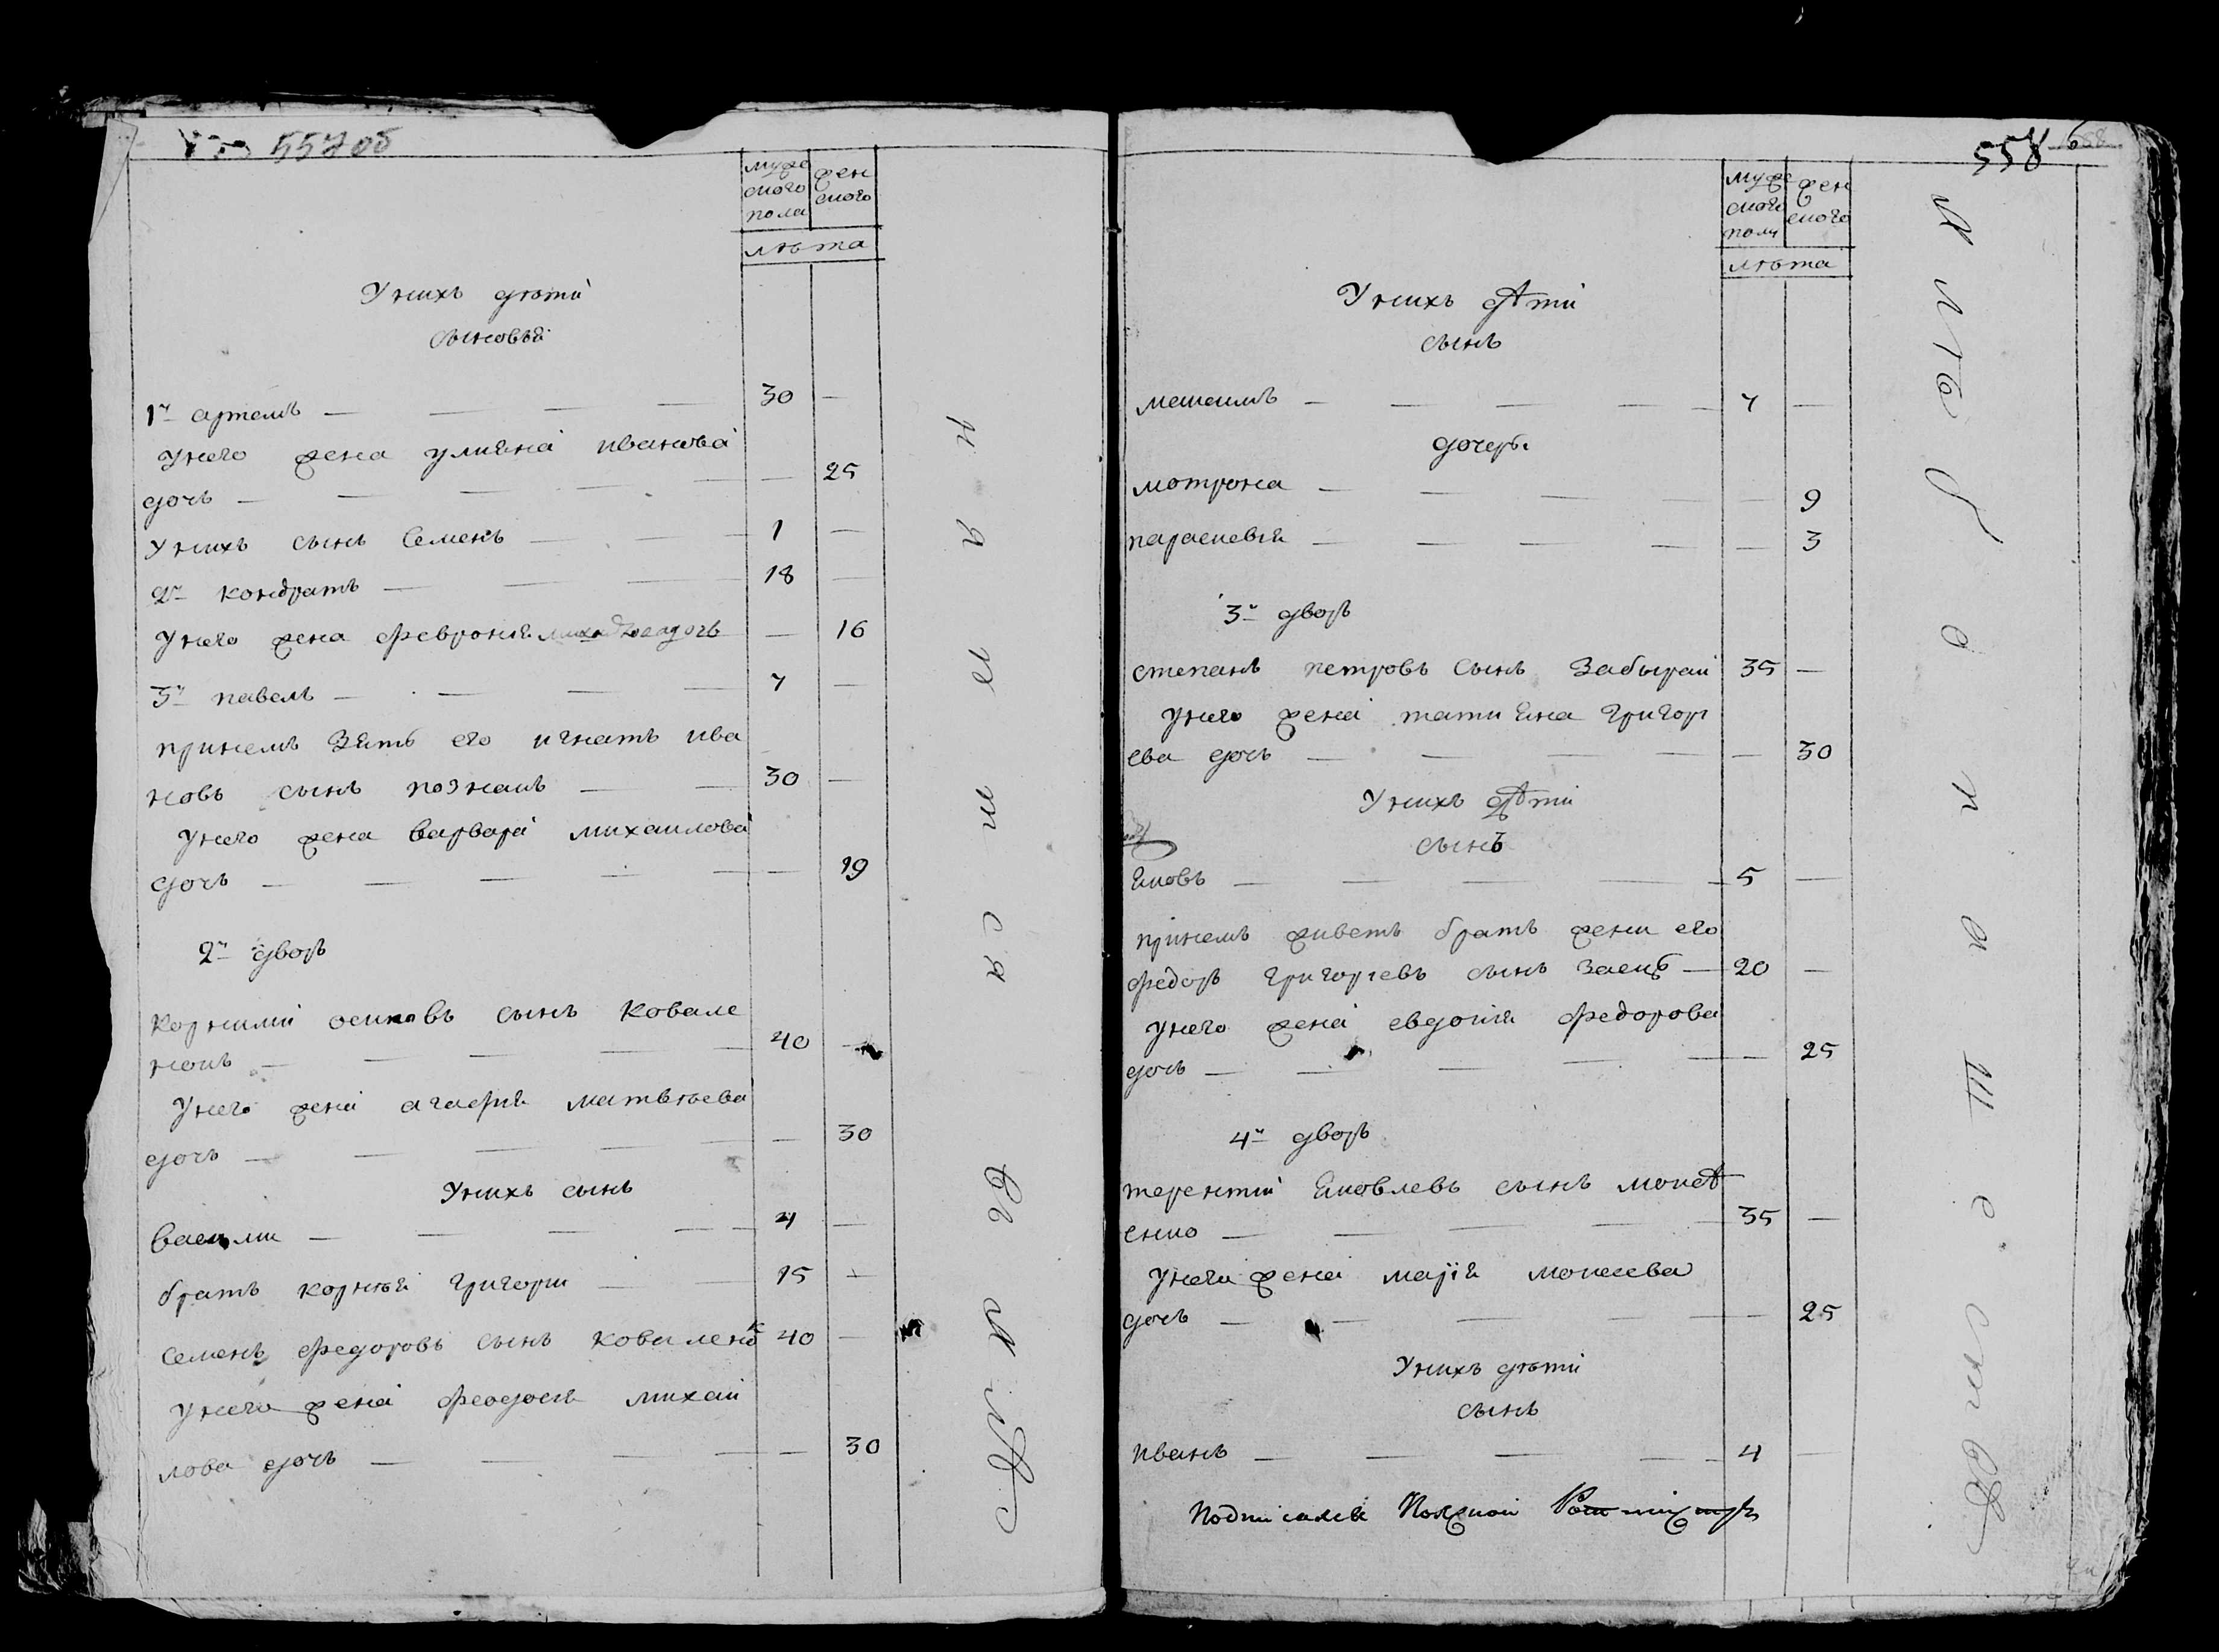 557об
муже
ского
пола
жен
ского
лѣта
У нихъ дѣти
сыновья
1й артемъ — 30 —
У него жена улияна иванова
дочь — — 25
У нихъ сынъ Семенъ — 1 —
2й кондратъ — 18 —
У него жена феврония дочь — 16
3й павелъ — 7 —
принемъ зять его игнатъ ива
новъ сынъ познакъ — 30 —
У него жена варвара михаилова
дочь — — 19
2й дворъ
Корнилии осиповъ сынъ Ковале
нокъ — 40 —
У него жена агафия матвѣева
дочь — — 30
У нихъ сынъ
васили — 4 —
братъ корнѣя григори — 15 —
семенъ федоровъ сынъ коваленок 40 —
У него жена феодосия михаи
лова дочь — — 30
н
я
е
т
с
я
558
6
муже
ского
пола
жен
ского
лѣта
У нихъ дѣти
сынъ
максимъ — 7 —
дочерь
мотрона — — 9
параскевия — — 3
3й дворъ
степанъ петровъ сынъ Забыраи 35 —
У него жена татияна григор
ева дочь — — 30
У нихъ дѣти
сынъ
Яковъ — 5 —
принемъ живетъ братъ жени его
федоръ григориевъ сынъ заецъ — 20 —
У него жена евдокия федорова
дочь — — 25
4й дворъ
терентии Яковлевъ сынъ моисѣ
енко — 35 —
У него жена мария моисеева
дочь — — 25
У нихъ дѣти
сынъ
иванъ — 4 —
Подписался Полковой